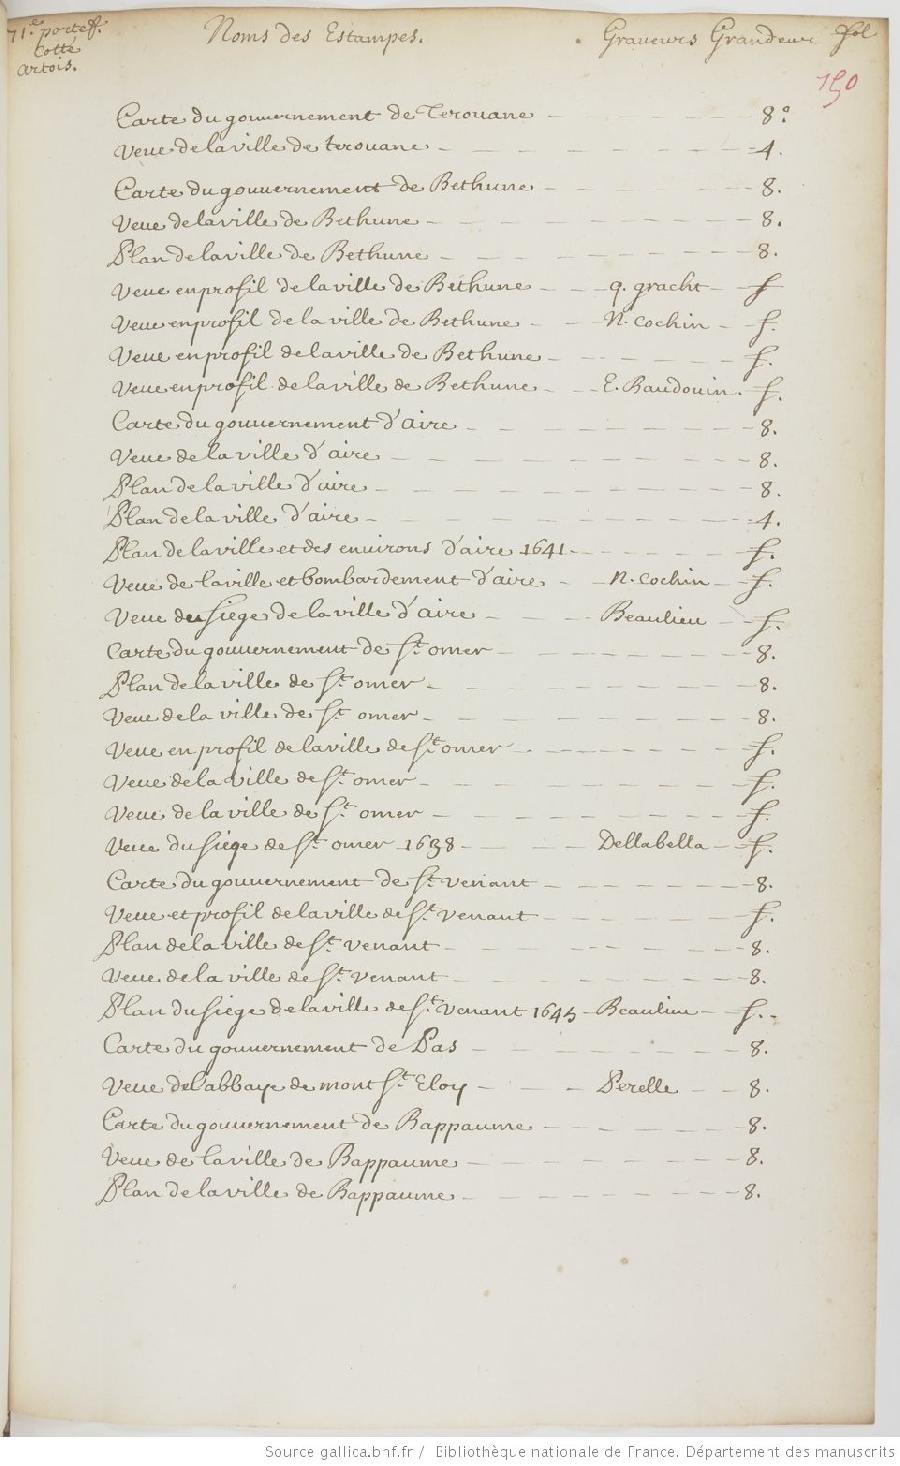 71.e portef. Cotté Artois.
Noms des Estampes. Graveurs Grandeur fol
150
Carte du gouvernement de Terouane - 8°
Veue de la ville de terouane - 4.
Carte du gouvernement de Bethune - 8.
Veue de la ville de Bethune - 8.
Plan de la ville de Bethune - 8.
Veue en profil de la ville de Bethune - q. gracht - f
Veue en profil de la ville de Bethune - N. Cochin - f.
Veue en profil de la ville de Bethune - f.
Veue en profil de la ville de Bethune - E. Baudouin. f.
Carte du gouvernement d'aire - 8.
Veue de la ville d'aire - 8.
Plan de la ville d'aire - 8.
Plan de la ville d'aire - 4.
Plan de la ville et des environs d'aire 1641 - f.
Veue de la ville et bombardement d'aire - N. Cochin - f.
Veue du siege de la ville d'aire - Beaulieu - f.
Carte du gouvernement de St. omer - 8.
Plan de la ville de St. omer - 8.
Veue de la ville de St omer - 8.
Veue en profil de la ville de St. omer - f.
Veue de la ville de St. omer - f.
Veue de la ville de St. omer - f
Veue du siege de St. omer 1638 - Dellabella - f.
Carte du gouvernement de St. venant - 8.
Veue et profil de la ville de St. venant - f.
Plan de la ville de St. venant - 8.
Veue de la ville de St. venant - 8.
Plan du siege de la ville de St. venant 1645 - Beaulieu - f.
Carte du gouvernement de Pas - 8.
Veue de l'abbaye de mont St. Eloy - Perelle - 8.
Carte du gouvernement de Bappaume - 8.
Veue de la ville de Bappaume - 8.
Plan de la ville de Bappaume - 8.
Source gallica.bnf.fr / Bibliothèque nationale de France. Département des manuscrits